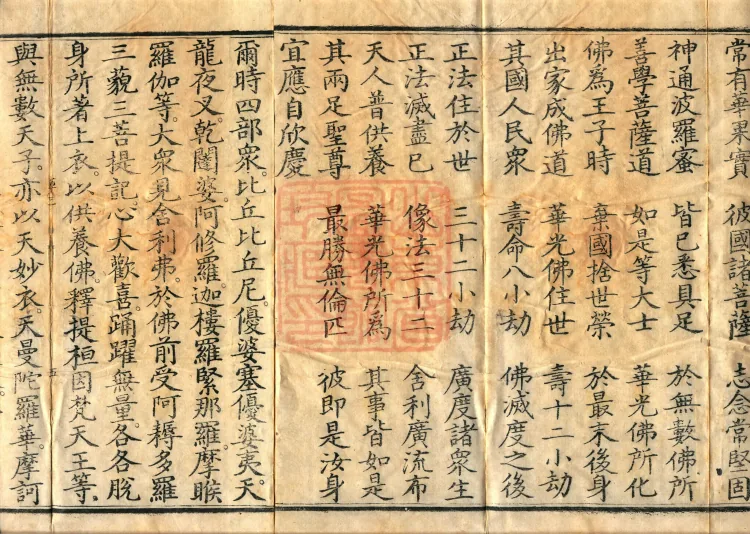 常有華果實 彼國諸菩薩 志念常堅固
神通波羅蜜 皆已悉具足 於無數佛所
善學菩薩道 如是等大士 華光佛所化
佛為王子時 棄國捨世榮 於最末後身
出家成佛道 華光佛住世 壽十二小劫
其國人民衆 壽命八小劫 佛滅度之後
正法住於世 三十二小劫 廣度諸衆生
正法滅盡已 像法三十二 舍利廣流布
天人普供養 華光佛所為 其事皆如是
其兩足聖尊 最勝無倫匹 彼即是汝身
宜應自欣慶
爾時四部衆。比丘比丘尼。優婆塞優婆夷。天
龍夜叉。乾闥婆。阿修羅迦樓羅緊那羅摩睺
羅伽等。大衆見舍利弗。於佛前受阿耨多羅
三藐三菩提記。心大歡喜。踊躍無量。各各脫
身所著上衣。以供養佛。釋提桓因。梵天王等。
與無數天子。亦以天妙衣。天曼陀羅華。摩訶